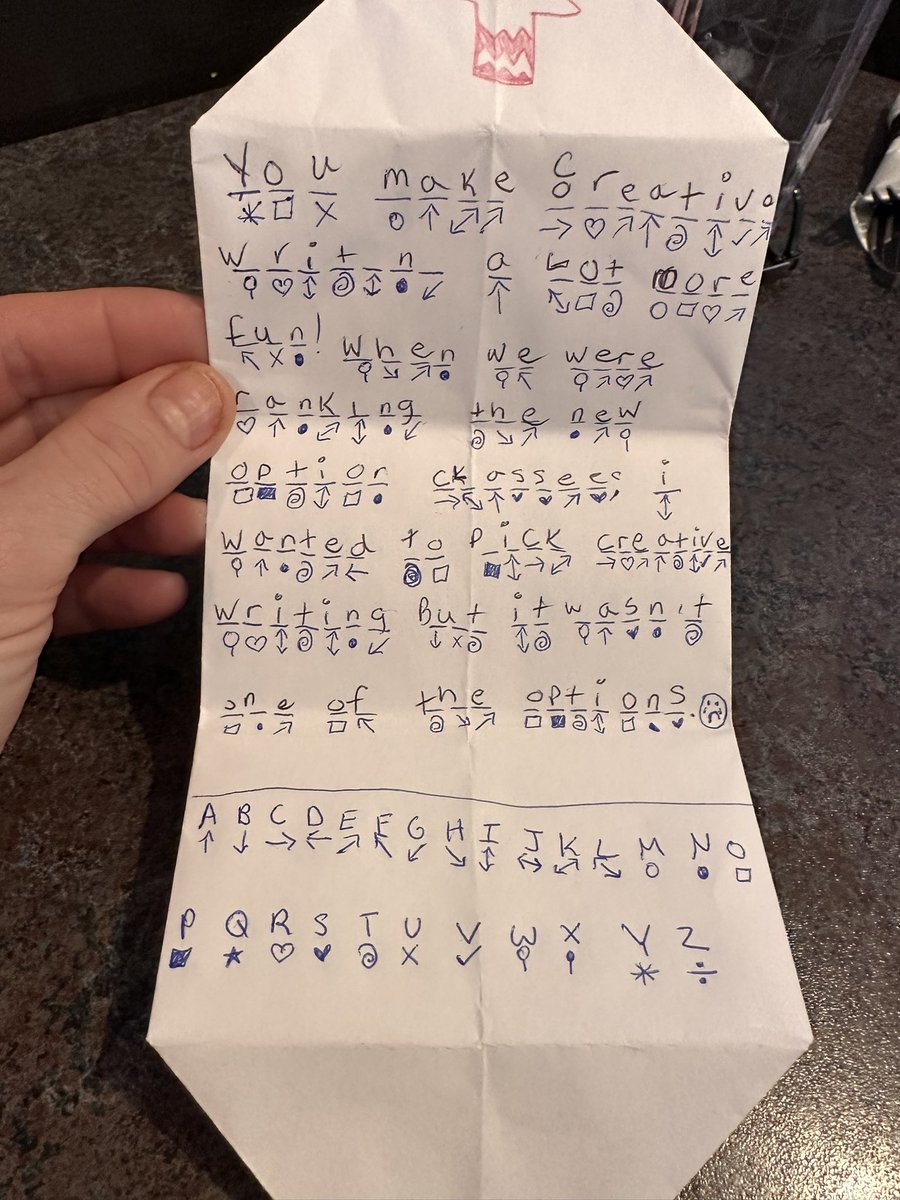 You make Creative
writ_n_ a Lot more
fun! When we were
ranking the new
option ckassees, i
wanted to pick creative
writing But it wasn't
one of the options.
A B C D E F G H I J K L M N O
P Q R S T U V W X Y Z